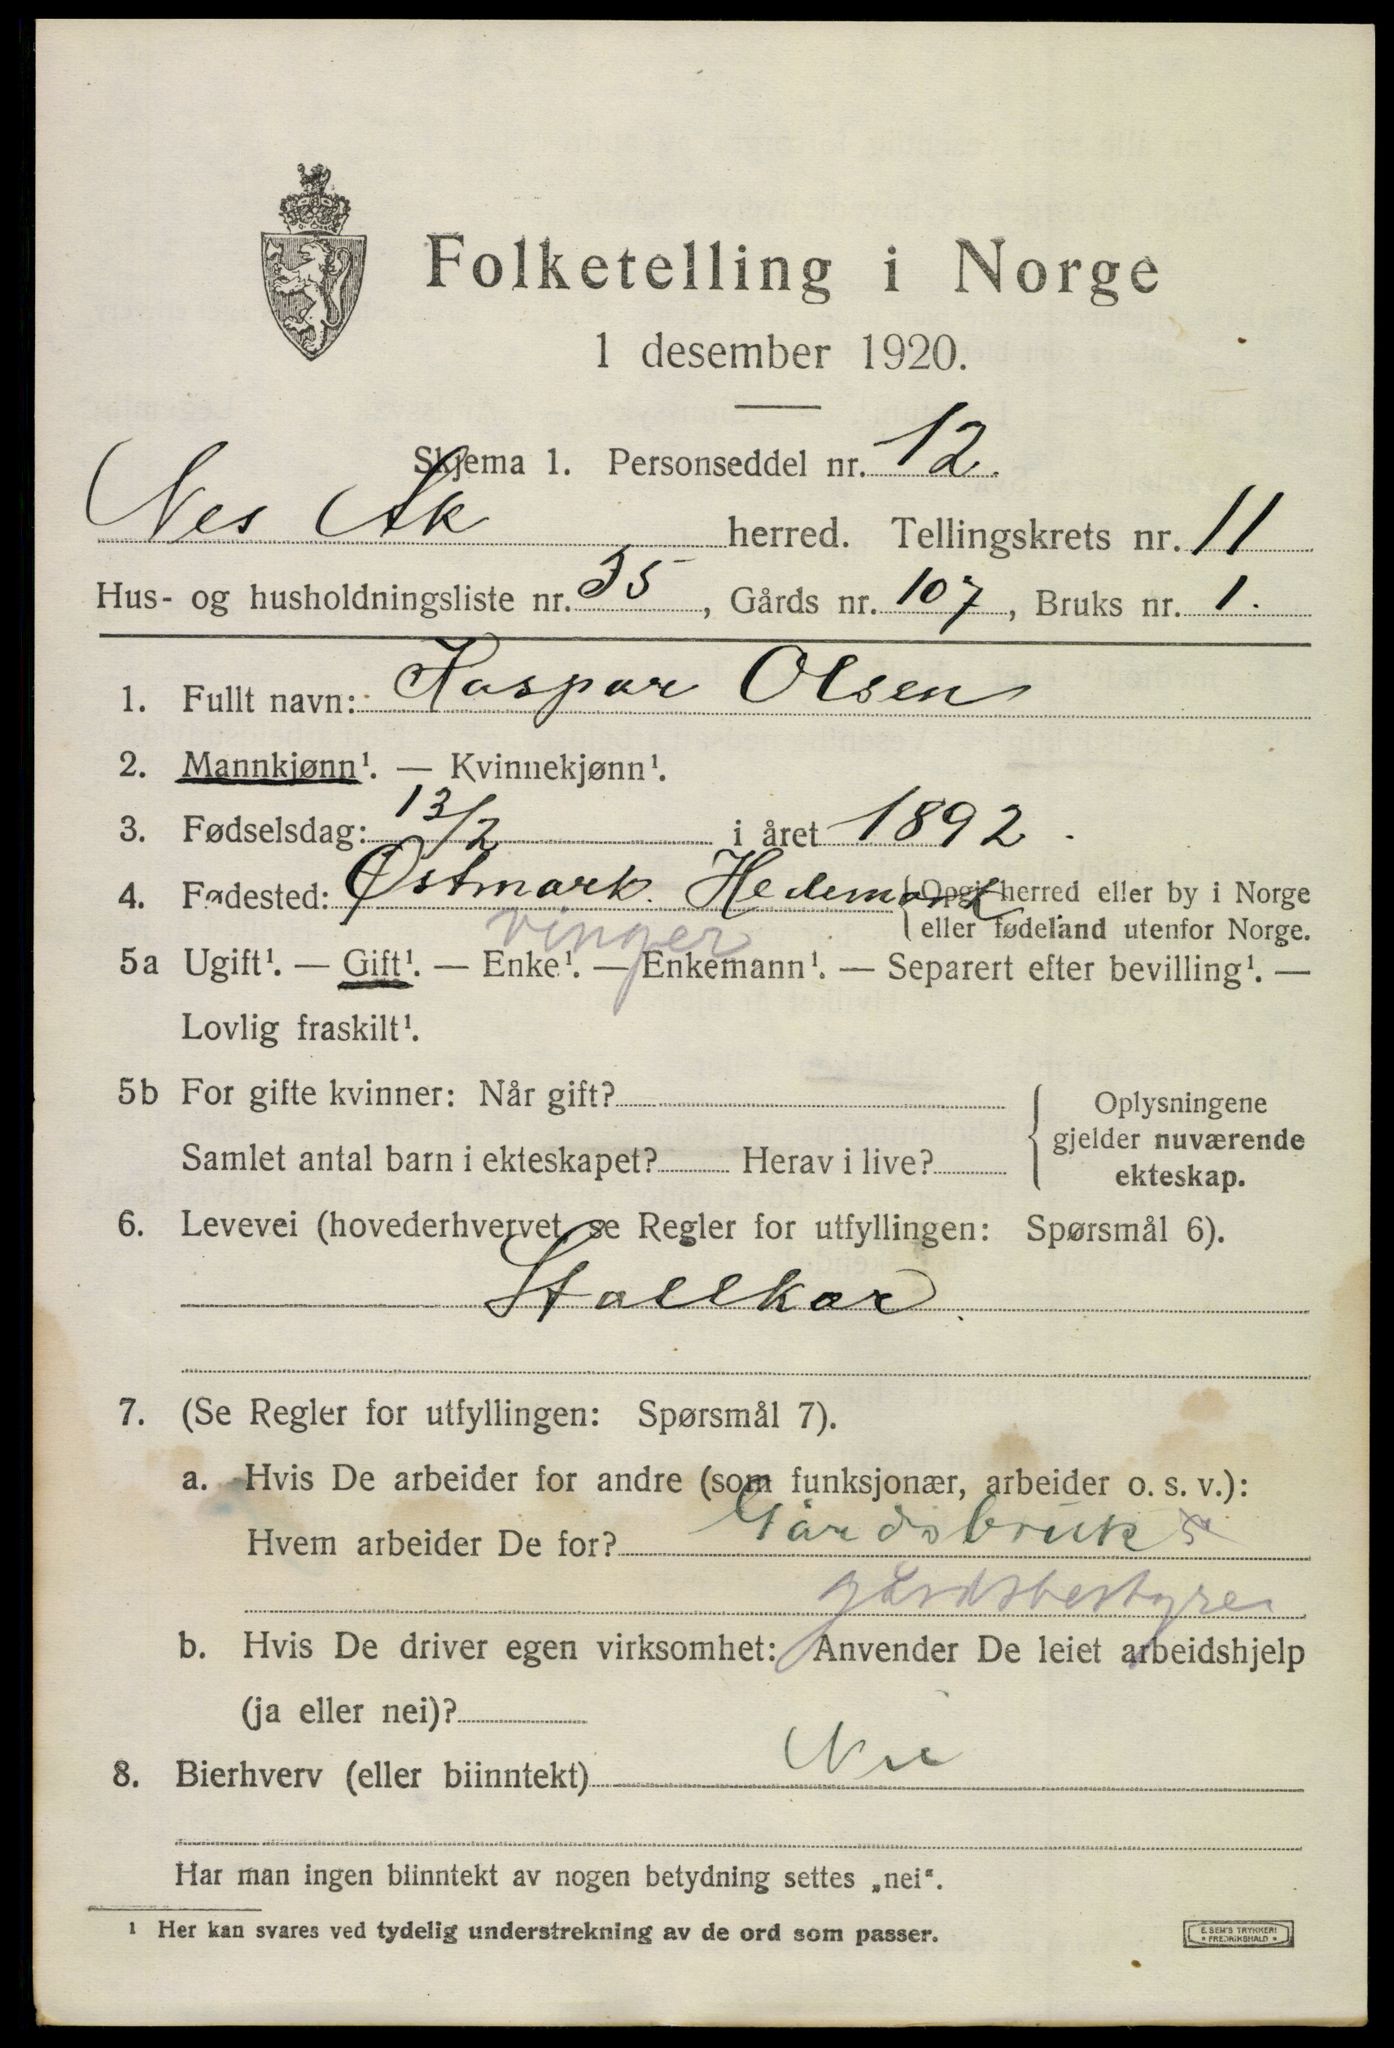 Folketelling i Norge
1 desember 1920.
Skjema 1. Personseddel nr. 12.
Nes Ak herred. Tellingskrets nr. 11
Hus- og husholdningsliste nr. 35, Gårds nr. 107, Bruks nr. 1.
1. Fullt navn: Kaspar Olsen
2. Mannkjønn¹. — Kvinnekjønn¹.
3. Fødselsdag: 13/2 i året 1892.
4. Fødested: Østmark. Hedemark {Opgi herred eller by i Norge
eller fødeland utenfor Norge.
vinger
5a Ugift¹. — Gift¹. — Enke¹. — Enkemann¹. — Separert efter bevilling¹. —
Lovlig fraskilt¹.
5b For gifte kvinner: Når gift?
Samlet antal barn i ekteskapet? Herav i live?
{Oplysningene
gjelder nuværende
ekteskap.
6. Levevei (hovederhvervet, se Regler for utfyllingen: Spørsmål 6).
Stallkar.
7. (Se Regler for utfyllingen: Spørsmål 7).
a. Hvis De arbeider for andre (som funksjonær, arbeider o. s. v.):
Hvem arbeider De for? Gårdsbruk
gårdsbestyrer
b. Hvis De driver egen virksomhet: Anvender De leiet arbeidshjelp
(ja eller nei)?
8. Bierhverv (eller biinntekt) Nei
Har man ingen biinntekt av nogen betydning settes „nei“.
¹ Her kan svares ved tydelig understrekning av de ord som passer.
E. SEM'S TRYKKERI
* FREDRIKSHALD *